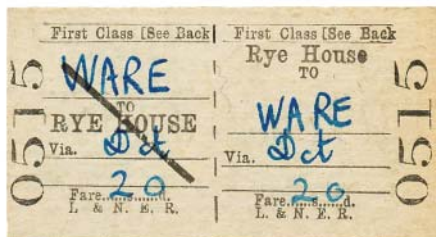 First Class [See Back
WARE
TO
RYE HOUSE
Via. Dct
2 0
Fare......s......d.
L & N. E. R.
0515
First Class [See Back
Rye House
TO
WARE
Via. Dct
2 0
Fare......s......d.
L & N. E. R.
0515